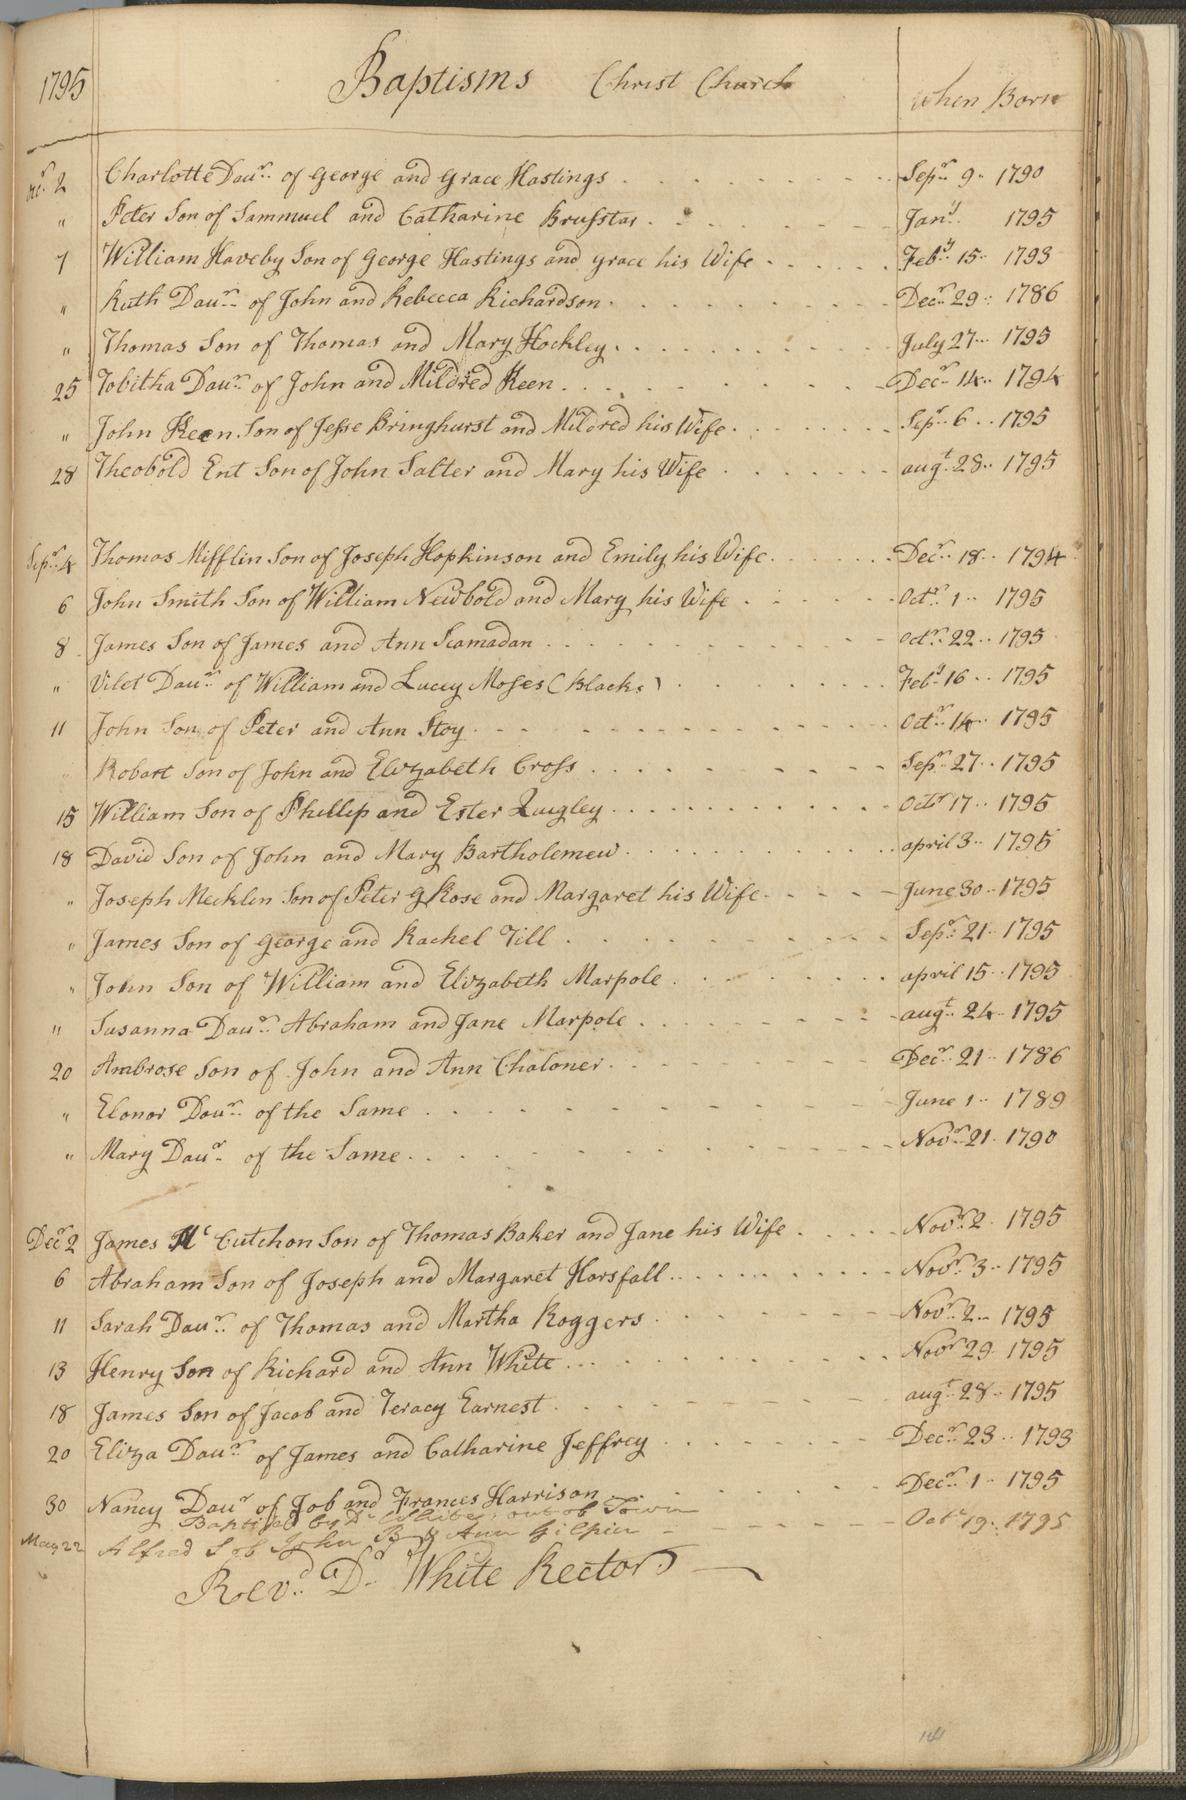 1795 Baptisms Christ Church When Born
Octr. 2 Charlotte Daur. of George and Grace Hastings Sepr. 9 1790
" Peter Son of Sammuel and Catharine Brusstar Jany. 1795
7 William Haveby Son of George Hastings and grace his Wife Feby. 15 1793
" Ruth Daur. of John and Rebecca Richardson Decr. 29 1786
" Thomas Son of Thomas and Mary Hockley July 27 1795
25 Tobitha Daur. of John and Mildred Keen Decr. 14 1794
" John Keen Son of Jesse Bringhurst and Mildred his Wife Sepr. 6 1795
28 Theobold Ent Son of John Salter and Mary his Wife augt. 28 1795
Sepr. 4 Thomas Mifflin Son of Joseph Hopkinson and Emily his Wife Decr. 18 1794
6 John Smith Son of William Newbold and Mary his Wife Octr. 1 1795
8 James Son of James and Ann Scamadan Octr. 22 1795
" Vilet Daur. of William and Lucey Moses (Blacks) Feby. 16 1795
11 John Son of Peter and Ann Stoy Octr. 14 1795
Robart Son of John and Elizabeth Cross Sepr. 27 1795
15 William Son of Phillip and Ester Quigley Octr. 17 1795
18 David Son of John and Mary Bartholemew april 3 1795
" Joseph Mecklen Son of Peter G Rose and Margaret his Wife June 30 1795
" James Son of George and Rachel Till Sepr. 21 1795
" John Son of William and Elizabeth Marpole april 15 1795
" Susanna Daur. Abraham and Jane Marpole augt. 24 1795
20 Ambrose Son of John and Ann Chaloner Decr. 21 1786
" Elonor Daur. of the Same June 1 1789
" Mary Daur. of the Same Novr. 21 1790
Decr. 2 James Mc Cutchon Son of Thomas Baker and Jane his Wife Novr. 2 1795
6 Abraham Son of Joseph and Margaret Horsfall Novr. 3 1795
11 Sarah Daur. of Thomas and Martha Roggers Novr. 2 1795
13 Henry Son of Richard and Ann White Novr. 29 1795
18 James Son of Jacob and Teracy Earnest augt. 28 1795
20 Eliza Daur. of James and Catharine Jeffrey Decr. 23 1793
30 Nancy Daur. of Job and Frances Harrison Decr. 1 1795
Baptised by Dr. White, out of Town
May 22 Alfred S of John &amp; Ann Gilpin Octr. 19 1795
Revd. Dr. White Rector